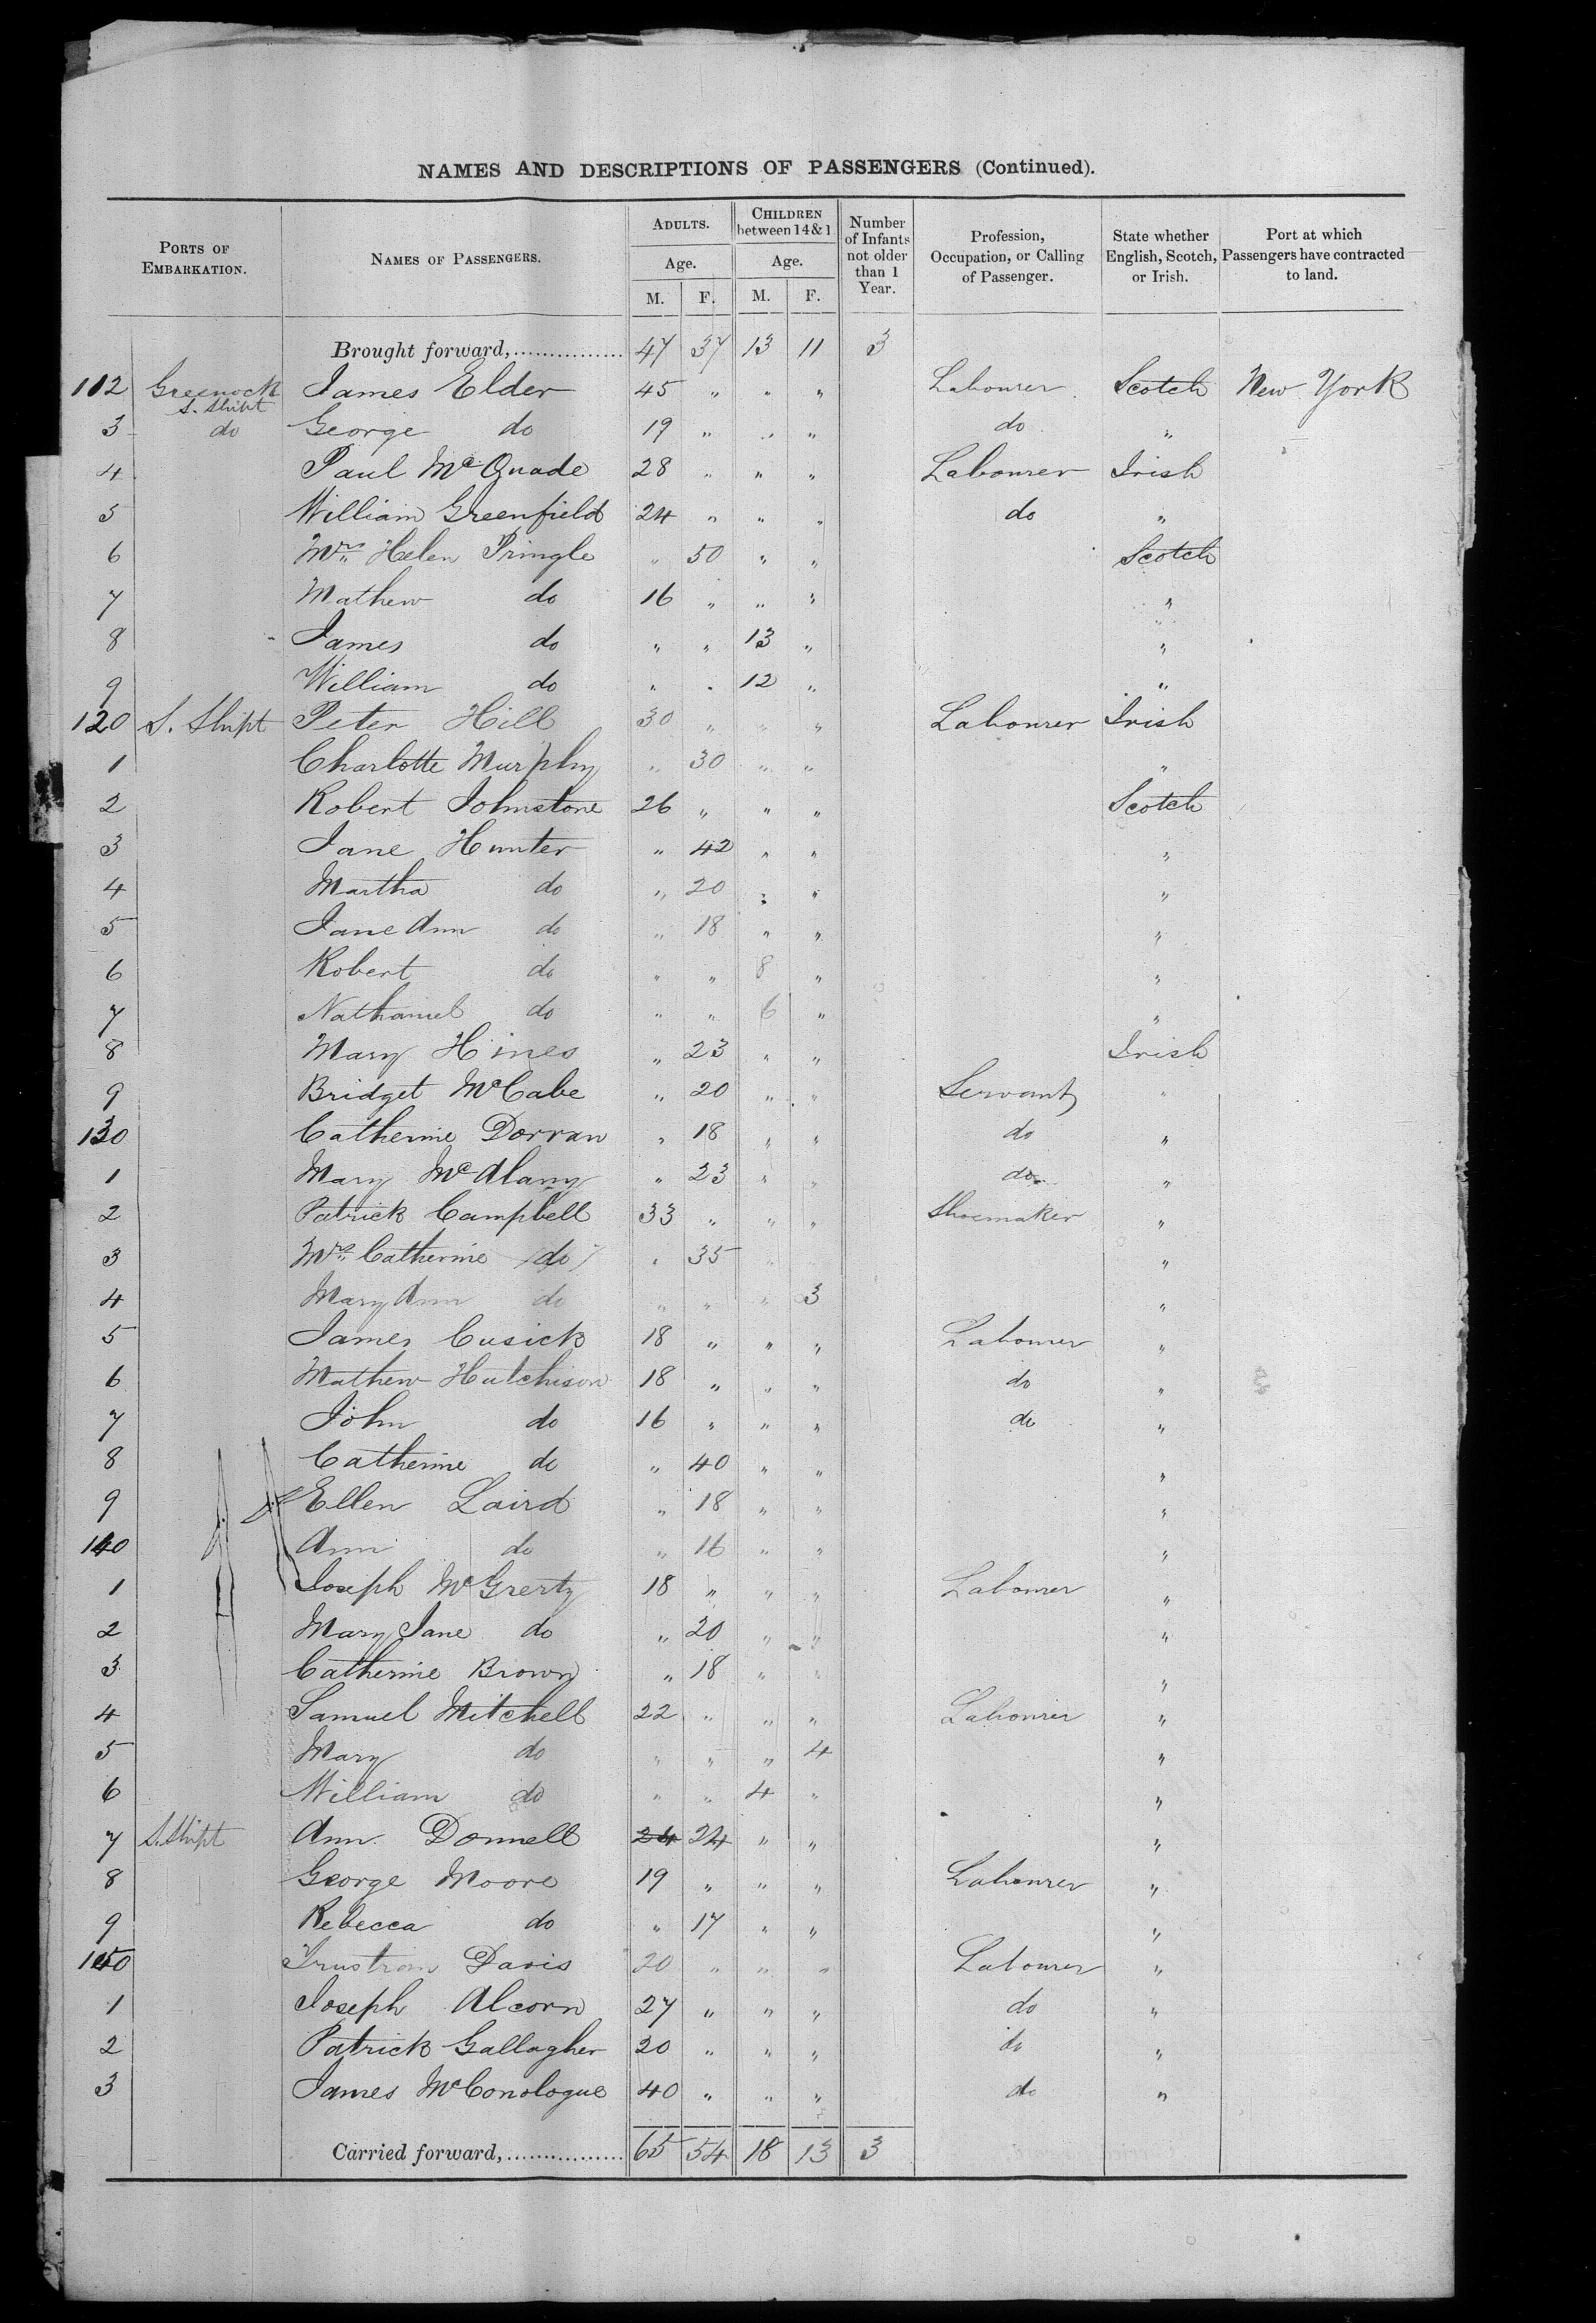 NAMES AND DESCRIPTIONS OF PASSENGERS (Continued).
PORTS OF EMBARKATION. NAMES OF PASSENGERS. ADULTS. Age. M. F. CHILDREN between 14 & 1 Age. M. F. Number of Infants not older than 1 Year. Profession, Occupation, or Calling of Passenger. State whether English, Scotch, or Irish. Port at which Passengers have contracted to land.
Brought forward, 47 37 13 11 3
112 Greenock James Elder 45 " " " Labourer Scotch New York
S. Shipt
3 do George do 19 " " " do "
4 Paul McQuade 28 " " " Labourer Irish
5 William Greenfield 24 " " " do "
6 Mrs Helen Pringle " 50 " " Scotch
7 Mathew do 16 " " " "
8 James do " " 13 " "
9 William do " " 12 " "
120 S. Shipt Peter Hill 30 " " " Labourer Irish
1 Charlotte Murphy " 30 " " "
2 Robert Johnstone 26 " " " Scotch
3 Jane Hunter " 42 " " "
4 Martha do " 20 " " "
5 Jane Ann do " 18 " " "
6 Robert do " " 8 " "
7 Nathaniel do " " 6 " "
8 Mary Hines " 23 " " Irish
9 Bridget McCabe " 20 " " Servant "
130 Catherine Dorran " 18 " " do "
1 Mary McAlany " 23 " " do "
2 Patrick Campbell 33 " " " Shoemaker "
3 Mrs Catherine do " 35 " "
4 Mary Ann do " " " 3 "
5 James Cusick 18 " " " Labourer "
6 Mathew Hutchison 18 " " " do "
7 John do 16 " " " do "
8 Catherine do " 40 " " "
9 Ellen Laird " 18 " " "
140 Ann do " 16 " " "
1 Joseph McGrerty 18 " " " Labourer "
2 Mary Jane do " 20 " " "
3 Catherine Brown " 18 " " "
4 Samuel Mitchell 22 " " " Labourer "
5 Mary do " " " 4 "
6 William do " " 4 " "
7 S. Shipt Ann Donnell 24 24 " " "
8 George Moore 19 " " " Labourer "
9 Rebecca do " 17 " " "
150 Trustrom Davis 20 " " " Labourer "
1 Joseph Alcorn 27 " " " do "
2 Patrick Gallagher 20 " " " do "
3 James McConologue 40 " " " do "
Carried forward, 65 54 18 13 3